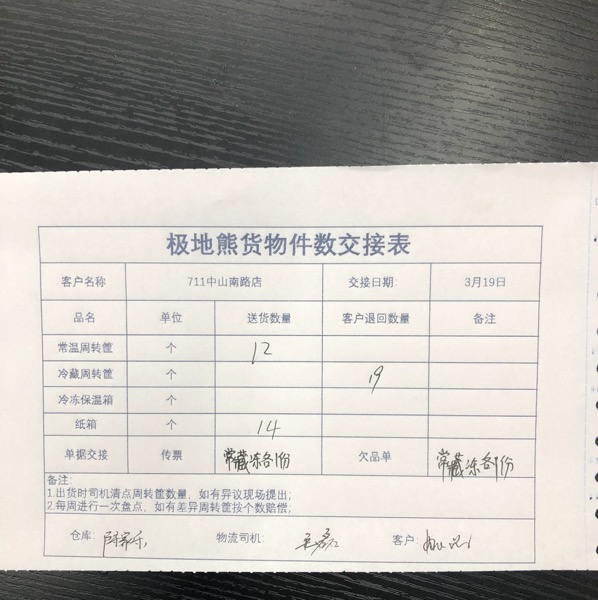 极地熊货物件数交接表
客户名称 711中山南路店 交接日期: 3月19日
品名 单位 送货数量 客户退回数量 备注
常温周转筐 个 12
冷藏周转筐 个 19
冷冻保温箱 个
纸箱 个 14
单据交接 传票 常藏冻各1份 欠品单 常藏冻各1份
备注:
1.出货时司机清点周转筐数量，如有异议现场提出;
2.每周进行一次盘点，如有差异周转筐按个数赔偿;
仓库: 物流司机: 客户: